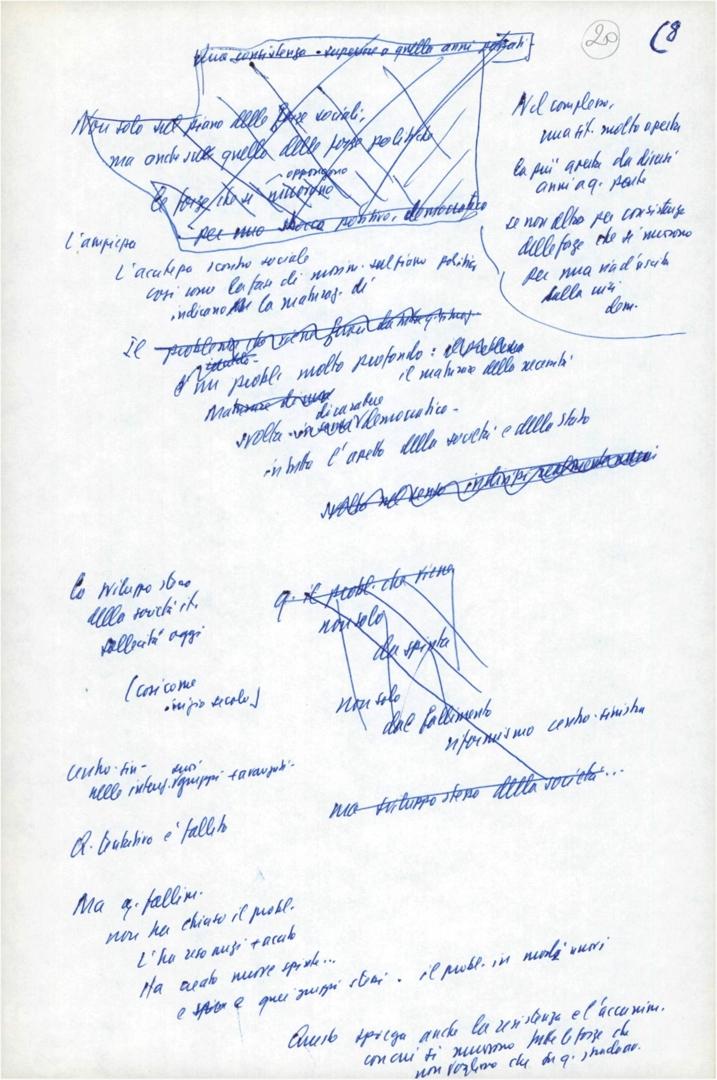 20 (8
una consistenza superiore a quella anni passati
Non solo sul piano delle forze sociali,
ma anche sulle quello delle forze politiche
oppongono
le forze che si muovono
per uno sbocco positivo, democratico
Nel complesso,
una sit. molto aperta
la più aperta da diversi
anni a q. parte
se non altro per consistenza
delle forze che si muovono
per una via d'uscita
dalla crisi
dem.
L'ampiezza
L'acutezza scontro sociale
così come la fase di movim. sul piano politico
indicano la maturaz. di
Il problema che
d'un probl. molto profondo: il problema
il maturare della necessità
Maturare di una
svolta democratica -
in tutto l'assetto della società e dello Stato
svolta nel senso
lo sviluppo stesso
della società it.
sollecita oggi
(così come
inizio secolo)
q. il probl. che viene
non solo
da spinta
non solo
dal fallimento
riformismo centro-sinistra
ma sviluppo stesso della società...
centro-sin- suoi
nelle intenz. gruppi + avanzati-
Q. tentativo è fallito
Ma q. fallim.
non ha chiuso il probl.
L'ha reso anzi + acuto
Ha creato nuove spinte...
e a quei gruppi stessi. il probl. in modi nuovi
Questo spiega anche la resistenza e l'accanim.
con cui si muovono tutte le forze che
non vogliono che in q. strada.